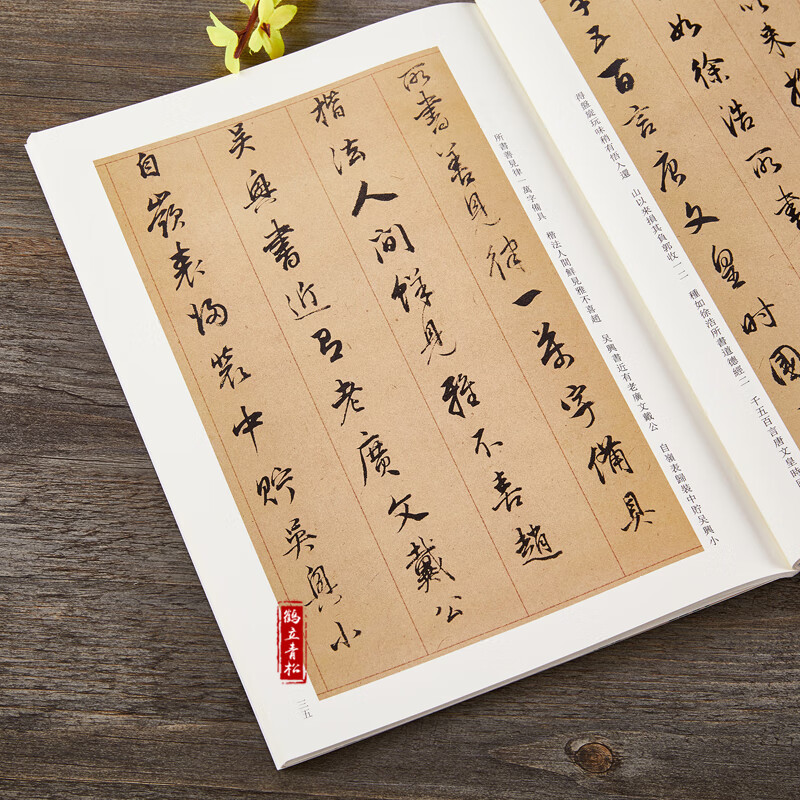 以来
如徐浩所書
千五百言唐文皇时國
得盤旋玩味稍有悟入還　山以來損其負郭收一二　種如徐浩所書道德經二　千五百言唐文皇時
所書善見律一萬字備具
楷法人間鮮見雅不喜趙
吳興書近有老廣文戴公
自嶺表歸裝中貯吳興小
所書善見律一萬字備具　楷法人間鮮見雅不喜趙　吳興書近有老廣文戴公　自嶺表歸裝中貯吳興小
鹤立青松
三五